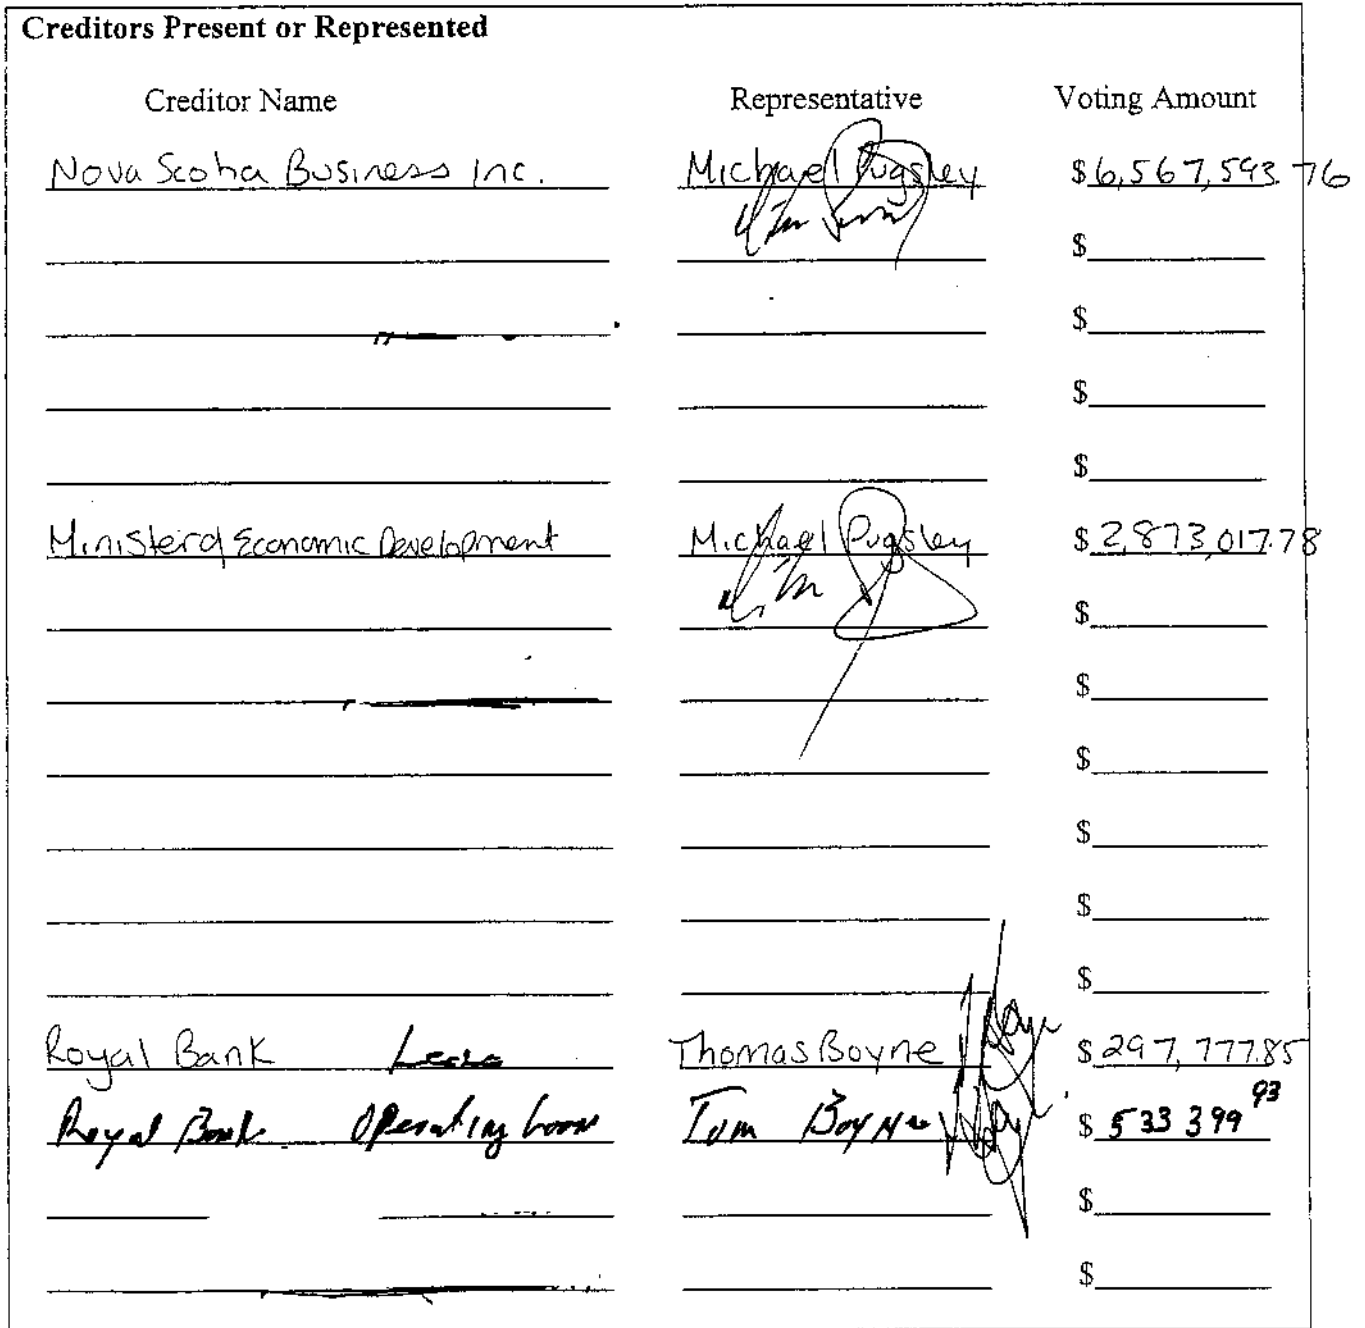 Creditors Present or Represented
Creditor Name Representative Voting Amount
Nova Scotia Business Inc. Michael Pugsley $6,567,593.76
$
$
$
$
Minister of Economic Development Michael Pugsley $2,873,017.78
$
$
$
$
$
$
Royal Bank Lease Thomas Boyne $297,777.85
Royal Bank Operating Loan Tom Boyne $533 399 93
$
$